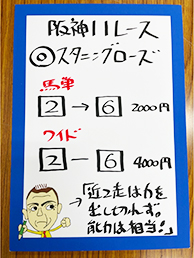 阪神11レース
◎スタニングローズ
馬単
2→6 2000円
ワイド
2－6 4000円
「近2走は力を
出し切れず。
能力は相当!」